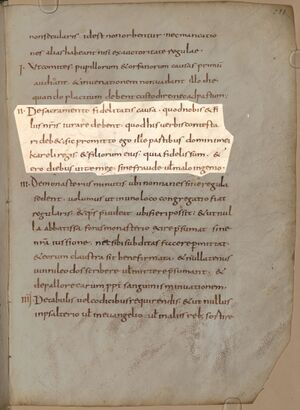 nonsecularis. idest nonorbentur. necmancatio
nes alias habeant nisi exauctoritate regulae.
I. Ut comites pupillorum & orfanorum causas primu
audiant. & invenationem nonvadant illo die
quando placitum debent custodire nec adpastum.
II. De sacramento fidelitatis causa. quod nobis & fi
liis nris iurare debent. quod his verbis contesta
ri deb& sic promitto ego ille partibus domini mei
karoli regis & filiorum eius. quia fidelis sum. &
ero diebus uitae meae. sine fraude ul malo ingenio.
III. De monasteriis minutis ubi nonnanes sine regula
sedent. volumus ut in uno loco congregatio fiat
regularis. & eps praevideat ubi fieri possit. & ut nul
la abbatissa foris monasterio exire
nra iussione. nec sibi subditas facere permittat.
& eorum claustra sint bene firmata. & nullatenus
uuinileodos scribere ul mittere praesumant. &
de pallore earum ppt sanguinis minuationem.
IIII. De tabulis vel codicibus requirendis. & ut nullus
in psalterio ul in evangelio ul in aliis reb; sortire